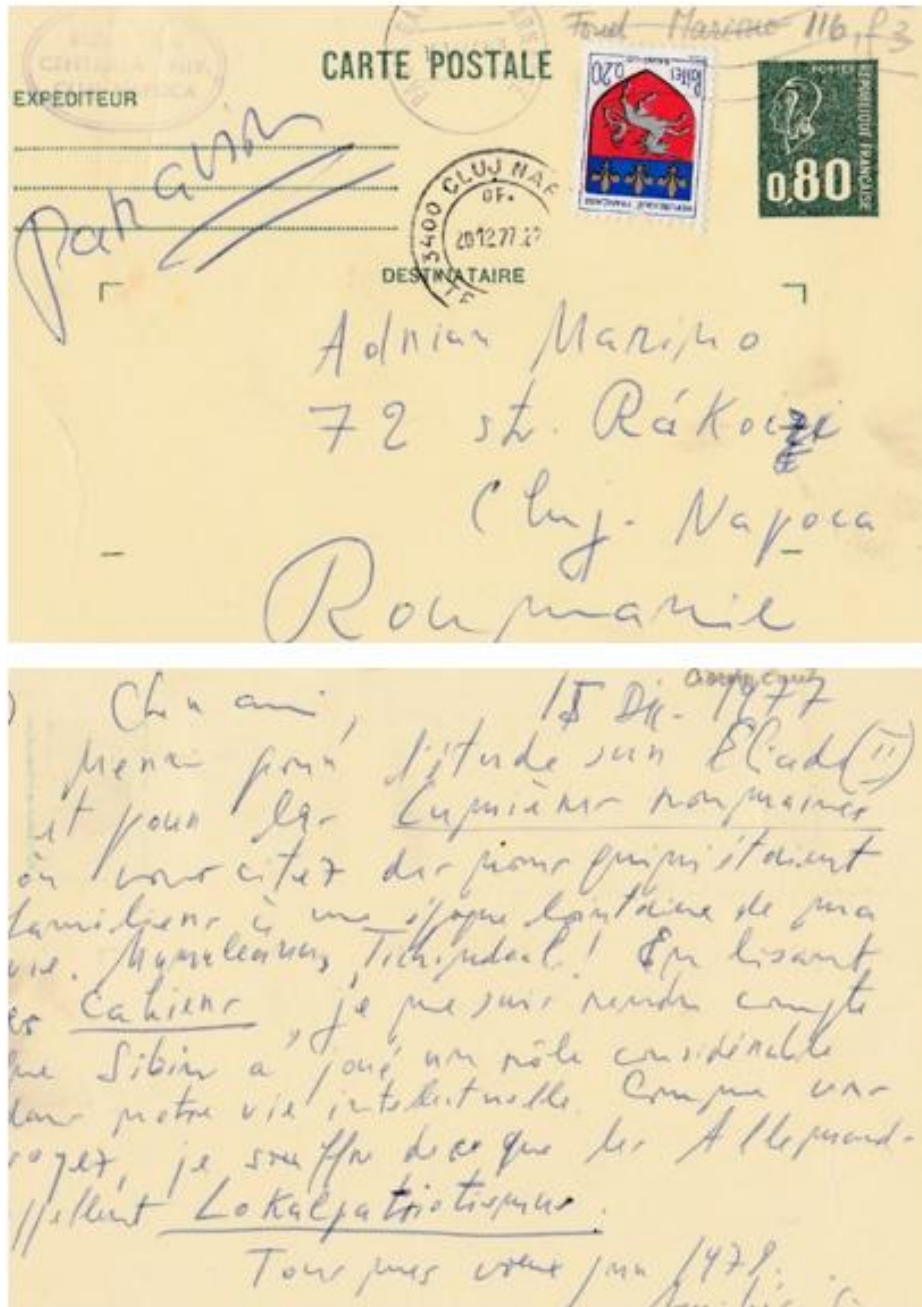 Fond Marino 116, f3
CARTE POSTALE
EXPÉDITEUR
Par avion
Poitiers 0,20
REPUBLIQUE FRANÇAISE
POSTES
REPUBLIQUE FRANÇAISE
0,80
3400 CLUJ NAP
OF.
20.12.77
DESTINATAIRE
Adrian Marino
72 str. Rákoczi
Cluj-Napoca
Roumanie
15 Déc. 1977
Cher ami,
Merci pour l'étude sur Eliade (II)
et pour les Lumières roumaines
où vous citez des noms qui m'étaient
familiers à une époque lointaine de ma
vie. Mumuleanu, Tichindeal! En lisant
es Cahiers, je me suis rendu compte
ue Sibiu a joué un rôle considérable
dans notre vie intellectuelle. Comme vous
oyez, je souffre de ce que les Allemands
ppellent Lokalpatriotismus.
Tous mes vœux pour 1978.